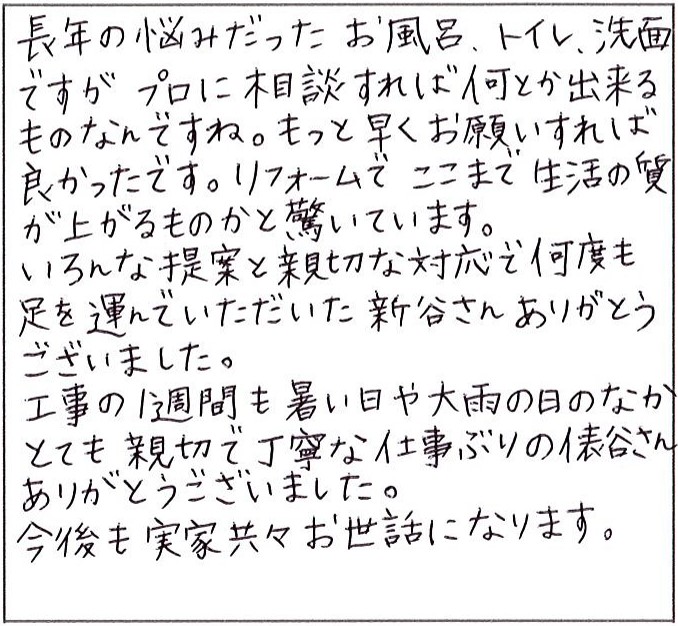 長年の悩みだった お風呂、トイレ、洗面
ですが プロに相談すれば何とか出来る
ものなんですね。もっと早くお願いすれば
良かったです。リフォームで ここまで 生活の質
が上がるものかと驚いています。
いろんな提案と親切な対応で何度も
足を運んでいただいた 新谷さん ありがとう
ございました。
工事の1週間も 暑い日や大雨の日のなか
とても 親切で丁寧な仕事ぶりの俵谷さん
ありがとうございました。
今後も実家共々お世話になります。